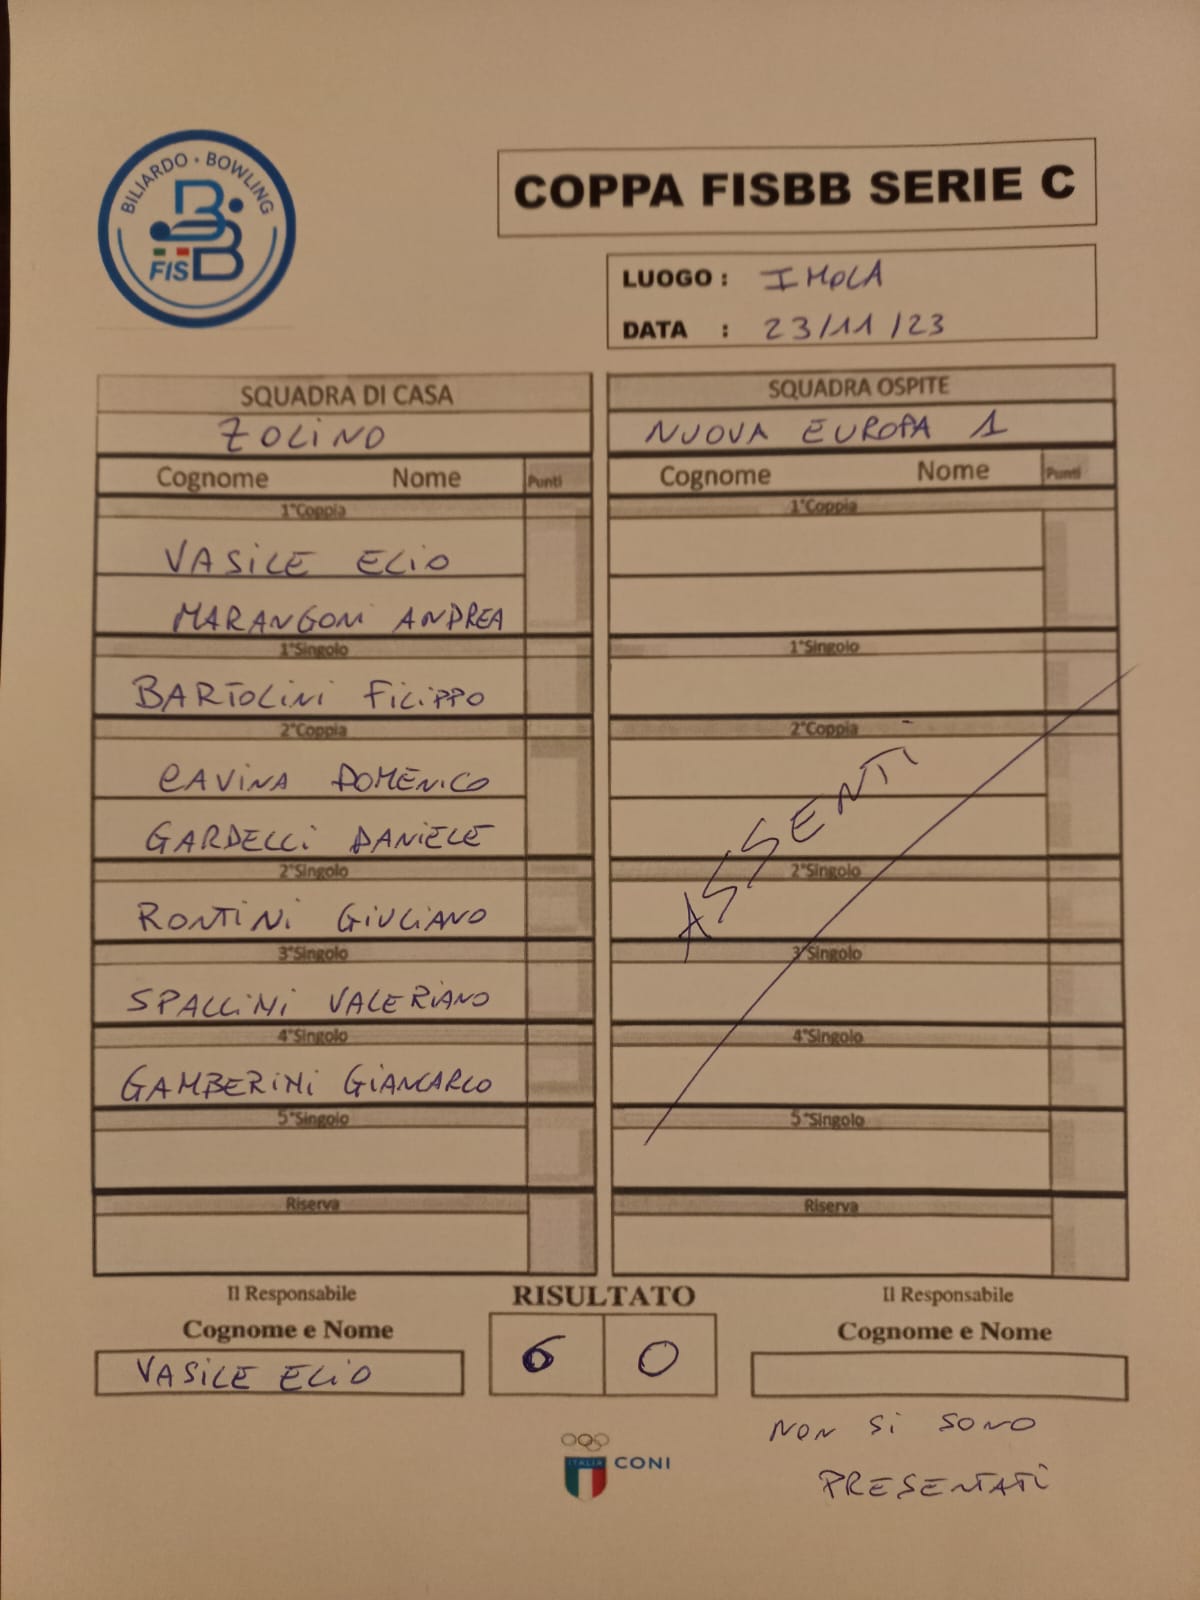 BILIARDO • BOWLING
FISBB
COPPA FISBB SERIE C
LUOGO : IMOLA
DATA : 23/11/23
SQUADRA DI CASA
ZOLINO
Cognome Nome Punti
1°Coppia
VASILE ELIO
MARANGONI ANDREA
1°Singolo
BARTOLINI FILIPPO
2°Coppia
CAVINA DOMENICO
GARDELLI DANIELE
2°Singolo
RONTINI GIULIANO
3°Singolo
SPALLINI VALERIANO
4°Singolo
GAMBERINI GIANCARLO
5°Singolo
Riserva
Il Responsabile
Cognome e Nome
VASILE ELIO
SQUADRA OSPITE
NUOVA EUROPA 1
Cognome Nome Punti
1°Coppia
1°Singolo
2°Coppia
ASSENTI
2°Singolo
3°Singolo
4°Singolo
5°Singolo
Riserva
RISULTATO
6 0
Il Responsabile
Cognome e Nome
NON SI SONO
PRESENTATI
ITALIA
CONI